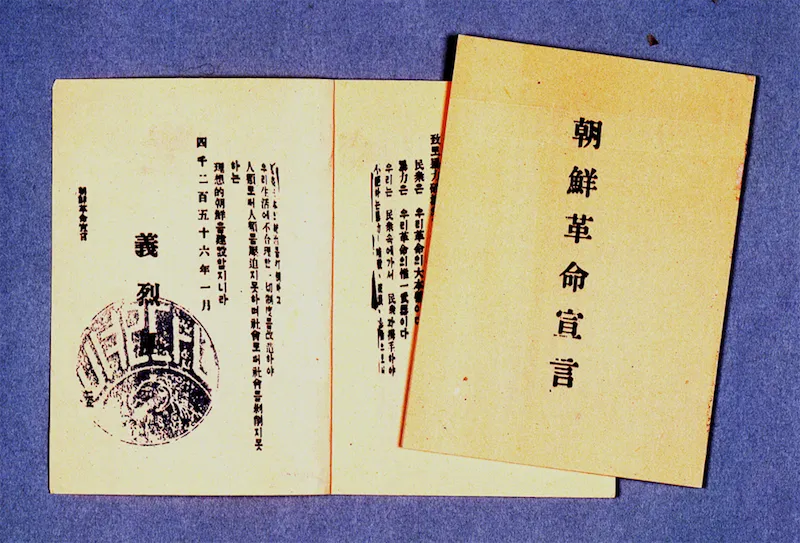 朝鮮革命宣言
民衆은 우리革命의大本營이다
暴力은 우리革命의惟一武器이다
우리는 民衆속에가서 民衆과携手하야
우리生活에不合理한一切制度를改造하야
人類로써人類를壓迫지못하며社會로써社會를剝削지못
하는
理想的朝鮮을建設할지니라
四千二百五十六年一月
義烈
朝鮮革命宣言